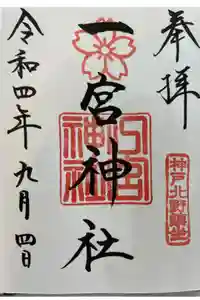 奉拝
一宮神社
一宮神社
神戸北野鎮坐
令和四年九月四日